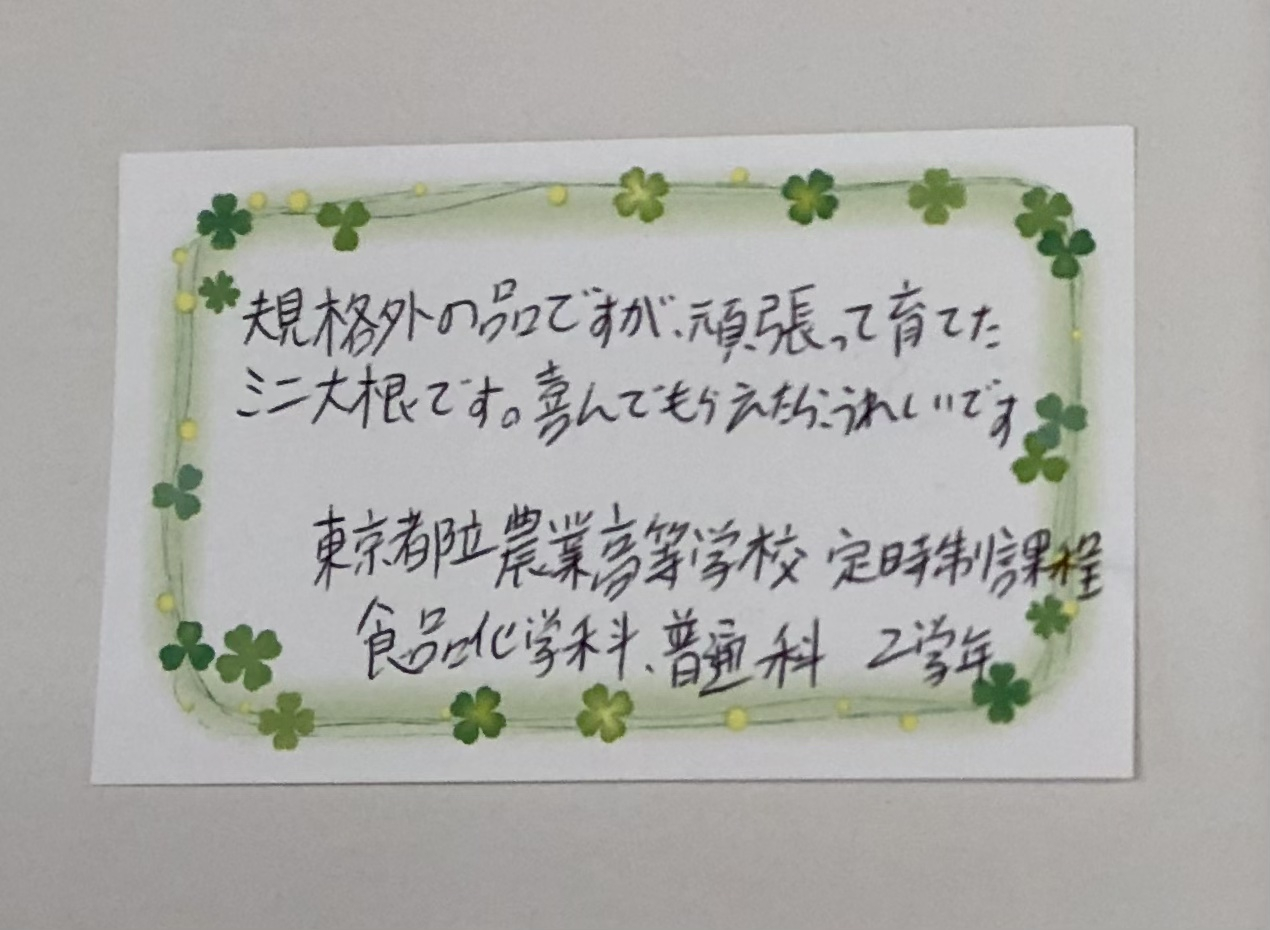 規格外の品ですが、頑張って育てた
ミニ大根です。喜んでもらえたら、うれしいです
東京都立農業高等学校 定時制課程
食品化学科、普通科 2学年